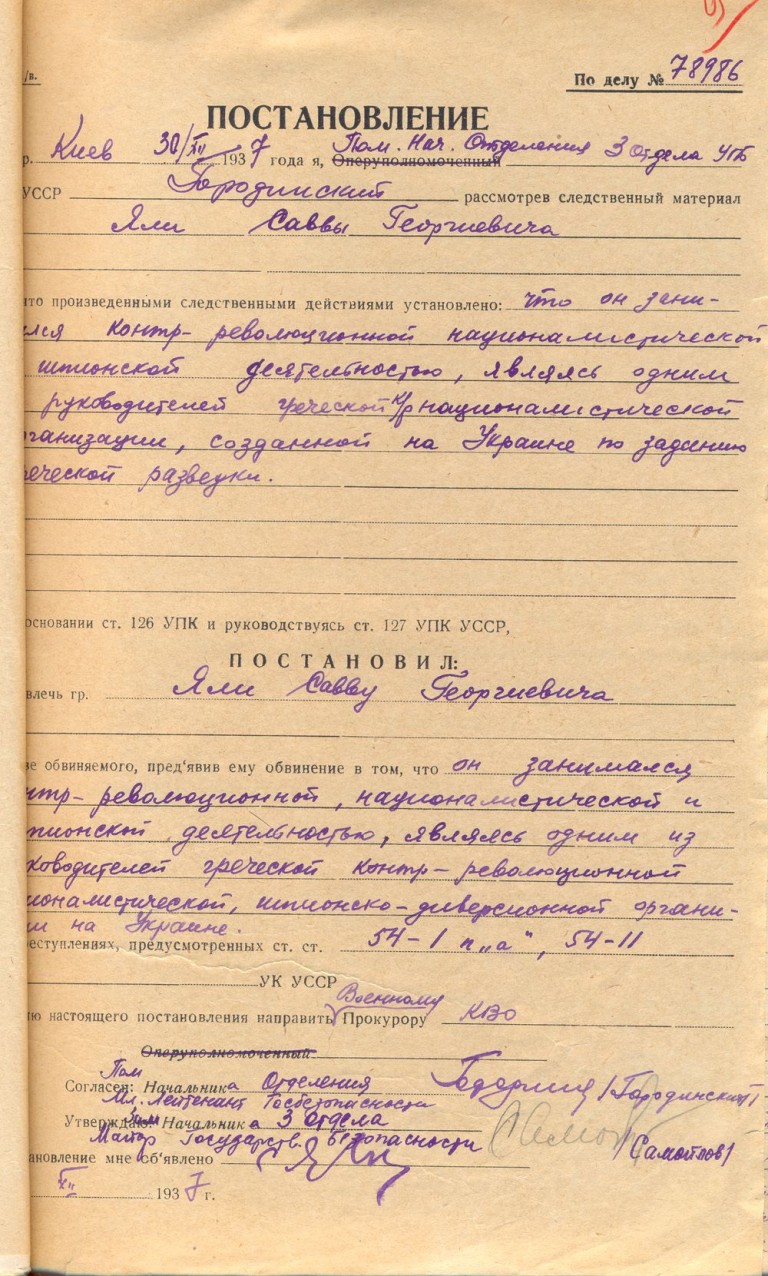 /в.
По делу № 78986
ПОСТАНОВЛЕНИЕ
р. Киев 30/XII 1937 года я, Оперуполномоченный Пом. Нач. Отделения 3 Отдела УГБ
УССР Городинский рассмотрев следственный материал
Яли Саввы Георгиевича
что произведенными следственными действиями установлено: что он зани-
лся контр-революционной националистической
шпионской деятельностью, являясь одним
руководителей греческой к/р националистической
рганизации, созданной на Украине по заданию
реческой разведки.
основании ст. 126 УПК и руководствуясь ст. 127 УПК УССР,
ПОСТАНОВИЛ:
влечь гр. Яли Савву Георгиевича
ве обвиняемого, пред'явив ему обвинение в том, что он занимался
нтр-революционной, националистической и
пионской деятельностью, являясь одним из
ководителей греческой контр-революционной
ионалистической, шпионско-диверсионной органи-
ии на Украине.
реступлениях, предусмотренных ст. ст. 54-1 п„а", 54-11
УК УССР
ию настоящего постановления направить Военному Прокурору КВО
Оперуполномоченный
Согласен: Пом Начальника Отделения /Городинский/
Мл. Лейтенант Госбезопасности
Утверждаю: Зам Начальника 3 Отдела
Майор Государств. Безопасности /Самойлов/
тановление мне об'явлено
XII 1937 г.